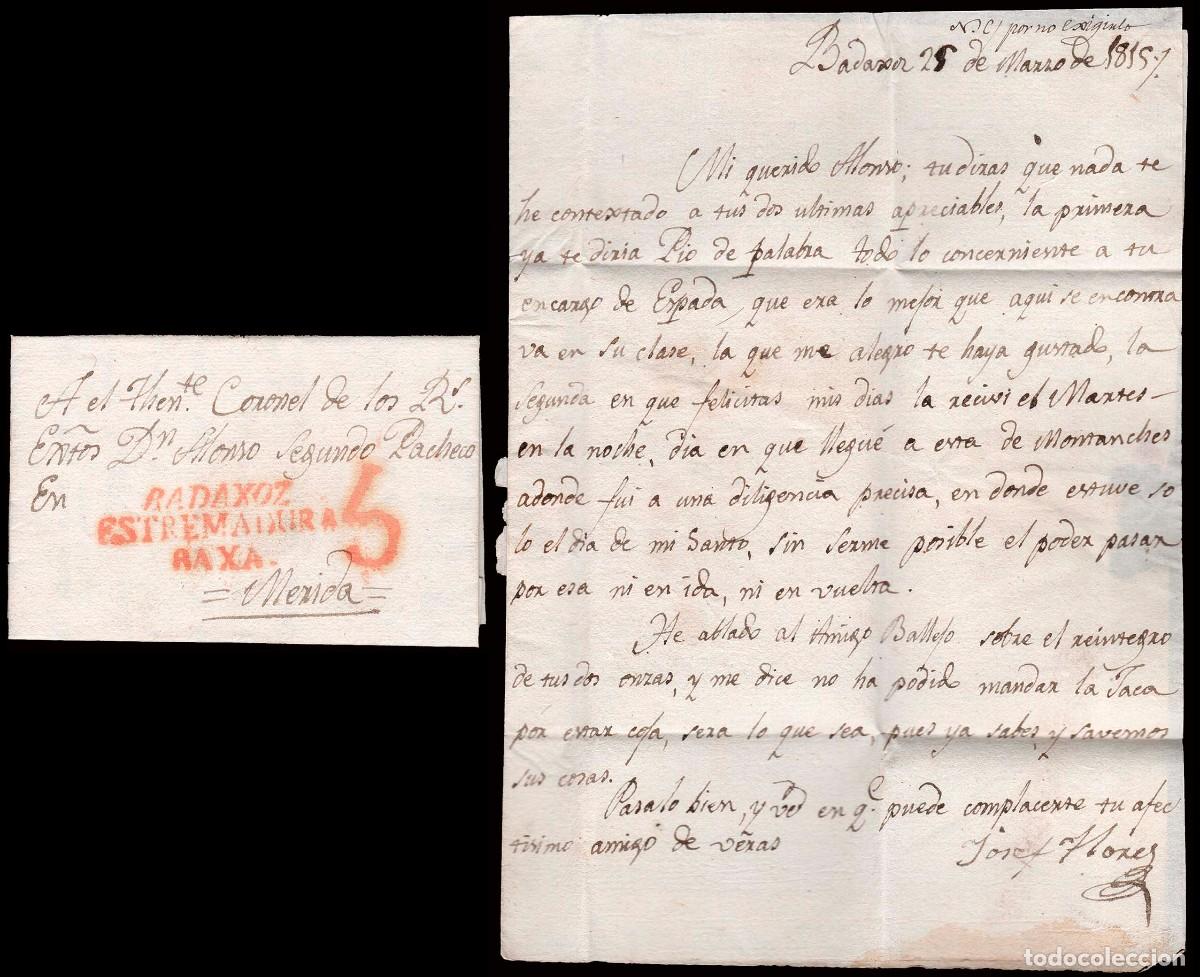 A el Then.te Coronel de los R.s
Extos D.n Alonso Segundo Pacheco
En
BADAXOZ
ESTREMADURA
BAXA.
5
=Merida=
por no exigirlo
Badaxoz 25 de Marzo de 1815,,
Mi querido Alonso; tu diras que nada te
he contextado a tus dos ultimas apreciables, la primera
ya te diria Pio de palabra todo lo concerniente a tu
encargo de Espada, que era lo mejor que aqui se encontra
va en su clase, la que me alegro te haya gustado, la
Segunda en que felicitas mis dias la recivi el Martes
en la noche, dia en que llegué a esta de Montanches
adonde fui a una diligencia precisa, en donde estuve so
lo el dia de mi Santo, sin serme posible el poder pasar
por esa ni en ida, ni en vuelta.
He ablado al Amigo Ballejo sobre el reintegro
de tus dos onzas, y me dice no ha podido mandar la Jaca
por estar coja, sera lo que sea, pues ya sabes, y savemos
sus cosas.
Pasalo bien, y ve en q.e puede complacerte tu afec
tisimo amigo de veras
Josef Flores
todocoleccion